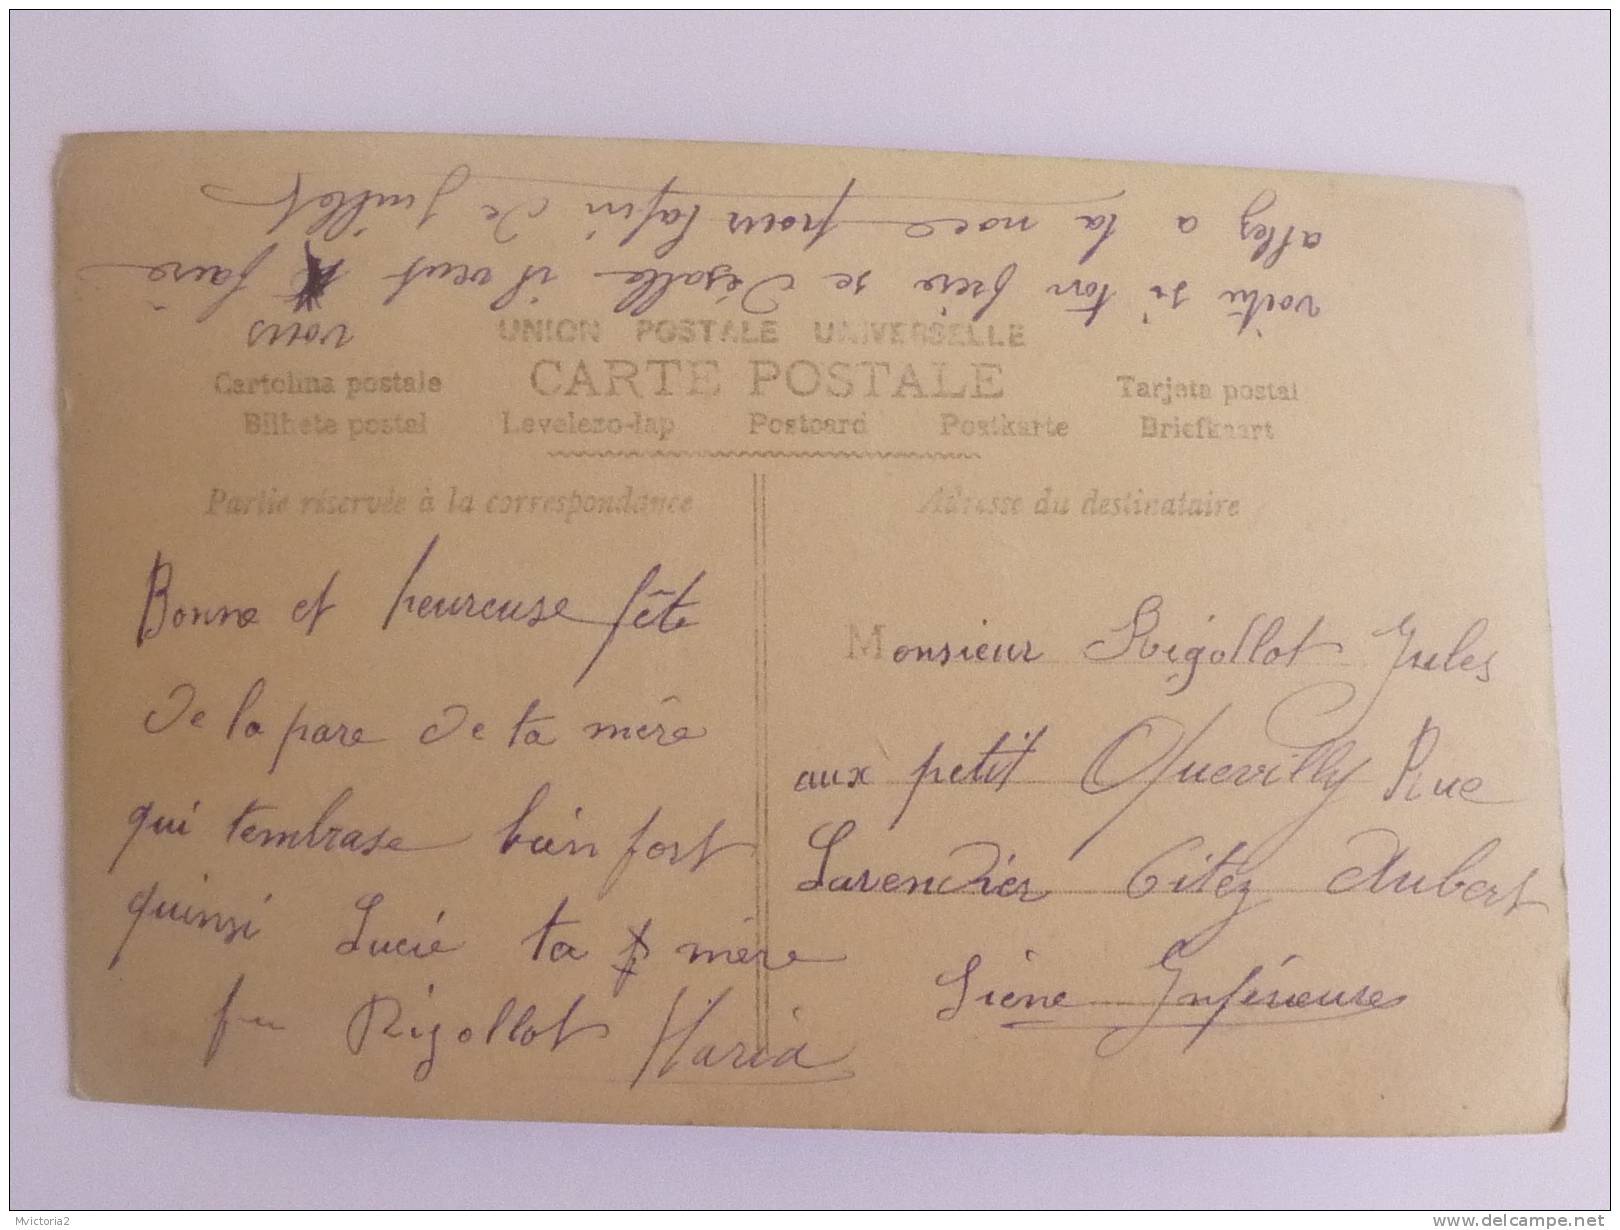 UNION POSTALE UNIVERSELLE
CARTE POSTALE
Cartolina postale Tarjeta postal
Bilhete postal Levelezo-lap Postcard Postkarte Briefkaart
Partie réservée à la correspondance
Bonne et heureuse fête
de la pare de ta mère
qui tembrase bien fort
quinsi Lucie ta mère
fe Rigollot Maria
Adresse du destinataire
Monsieur Rigollot Jules
aux petit Quevilly Rue
Lavendier Citez Aubert
Siene Inférieure
vous
voitu si ton freire se désalle il veut faire
allez a la noce pour lafin de juillet
Mvictoria2
delcampe.net